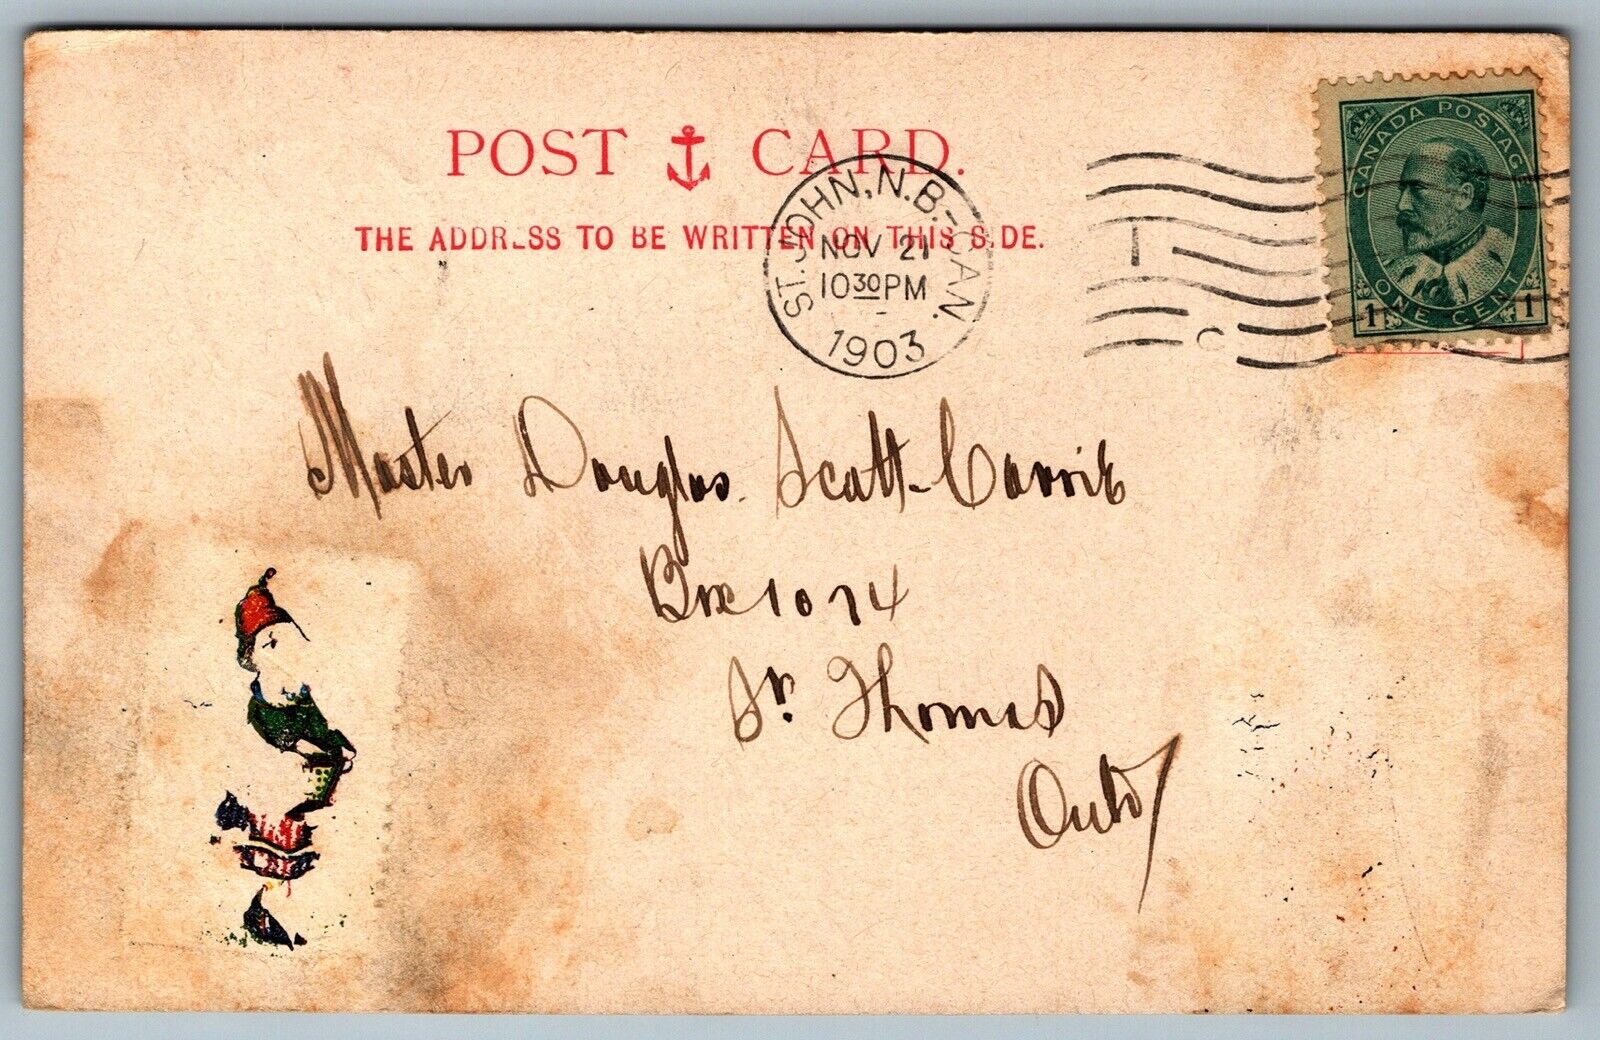 POST CARD.
THE ADDRESS TO BE WRITTEN ON THIS SIDE.
ST. JOHN, N.B.-CAN.
NOV 21
10 30 PM
1903
CANADA POSTAGE
ONE CENT
1 1
Master Douglas Scott-
Box 1074
St. Thomas
Ont